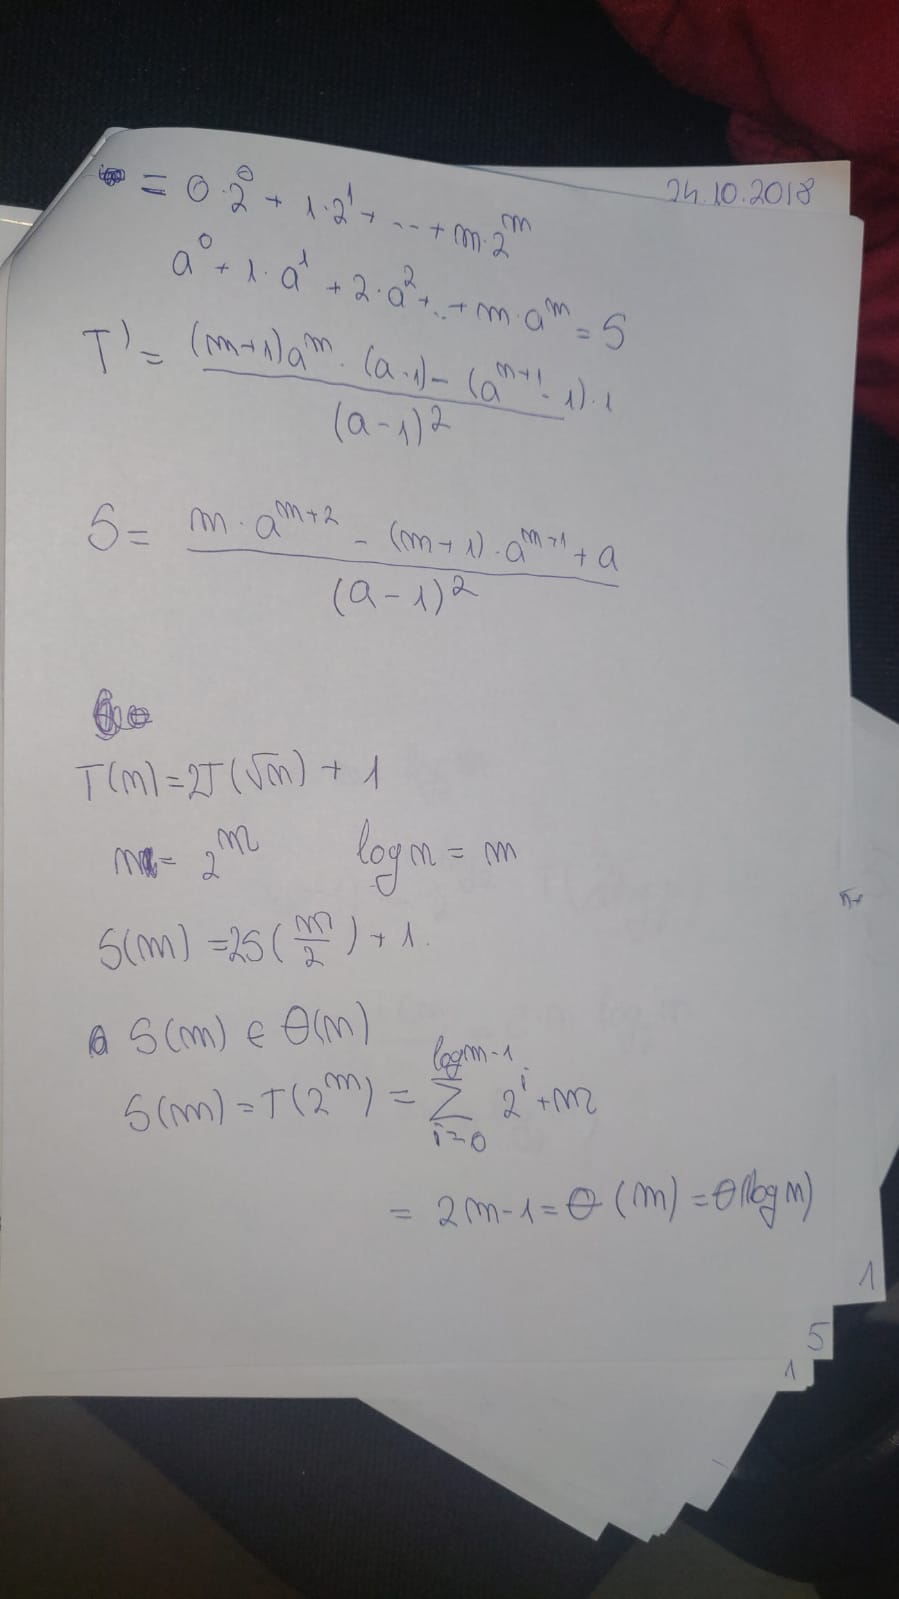 24.10.2018
= 0·2⁰ + 1·2¹ + ... + m·2ᵐ
a⁰ + 1·a¹ + 2·a² + .. + m·aᵐ = S
T' = ((m+1)aᵐ · (a-1) - (aᵐ⁺¹ - 1)·1) / (a-1)²
S = (m·aᵐ⁺² - (m+1)·aᵐ⁺¹ + a) / (a-1)²
T(n) = 2T(√n) + 1
n = 2ᵐ log n = m
S(m) = 2S(m/2) + 1.
S(m) ∈ Θ(m)
S(m) = T(2ᵐ) = Σ_{i=0}^{log m-1} 2ⁱ + m
= 2m-1 = Θ(m) = Θ(log n)
1
5
1